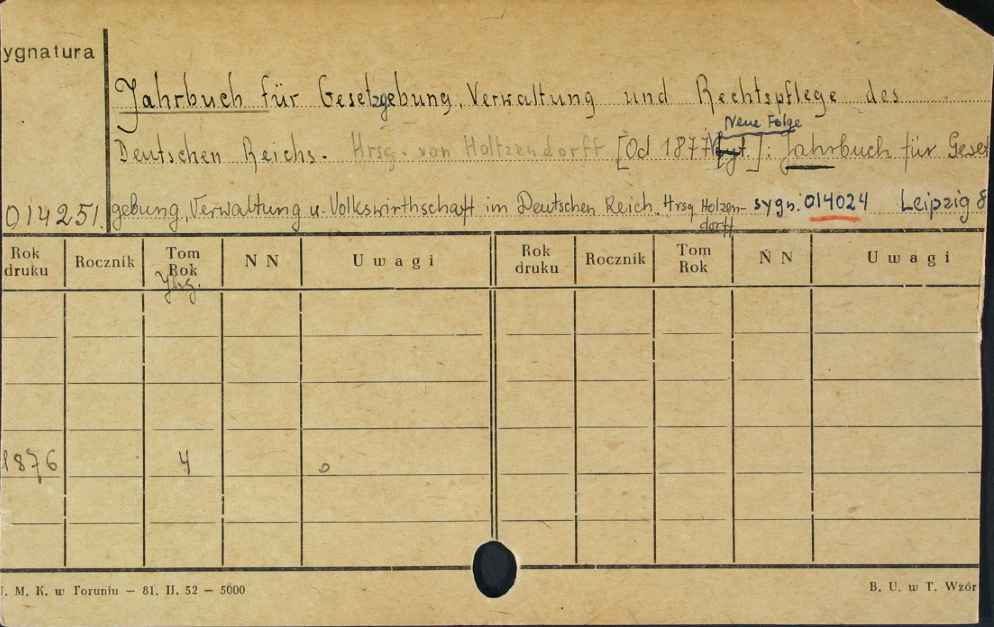 ygnatura
Jahrbuch für Gesetzgebung, Verwaltung und Rechtspflege des
Neue Folge
Deutschen Reichs. Hrsg. von Holtzendorff [Od 1877 tyt.]: Jahrbuch für Geset
014251. gebung, Verwaltung u. Volkswirthschaft im Deutschen Reich. Hrsg. Holzen- sygn. 014024 Leipzig 8
dorff
Rok druku Rocznik Tom Rok N N Uwagi Rok druku Rocznik Tom Rok N N Uwagi
Jhg.
1876 4 o
. M. K. w Toruniu — 81. II. 52 — 5000 B. U. w T. Wzór